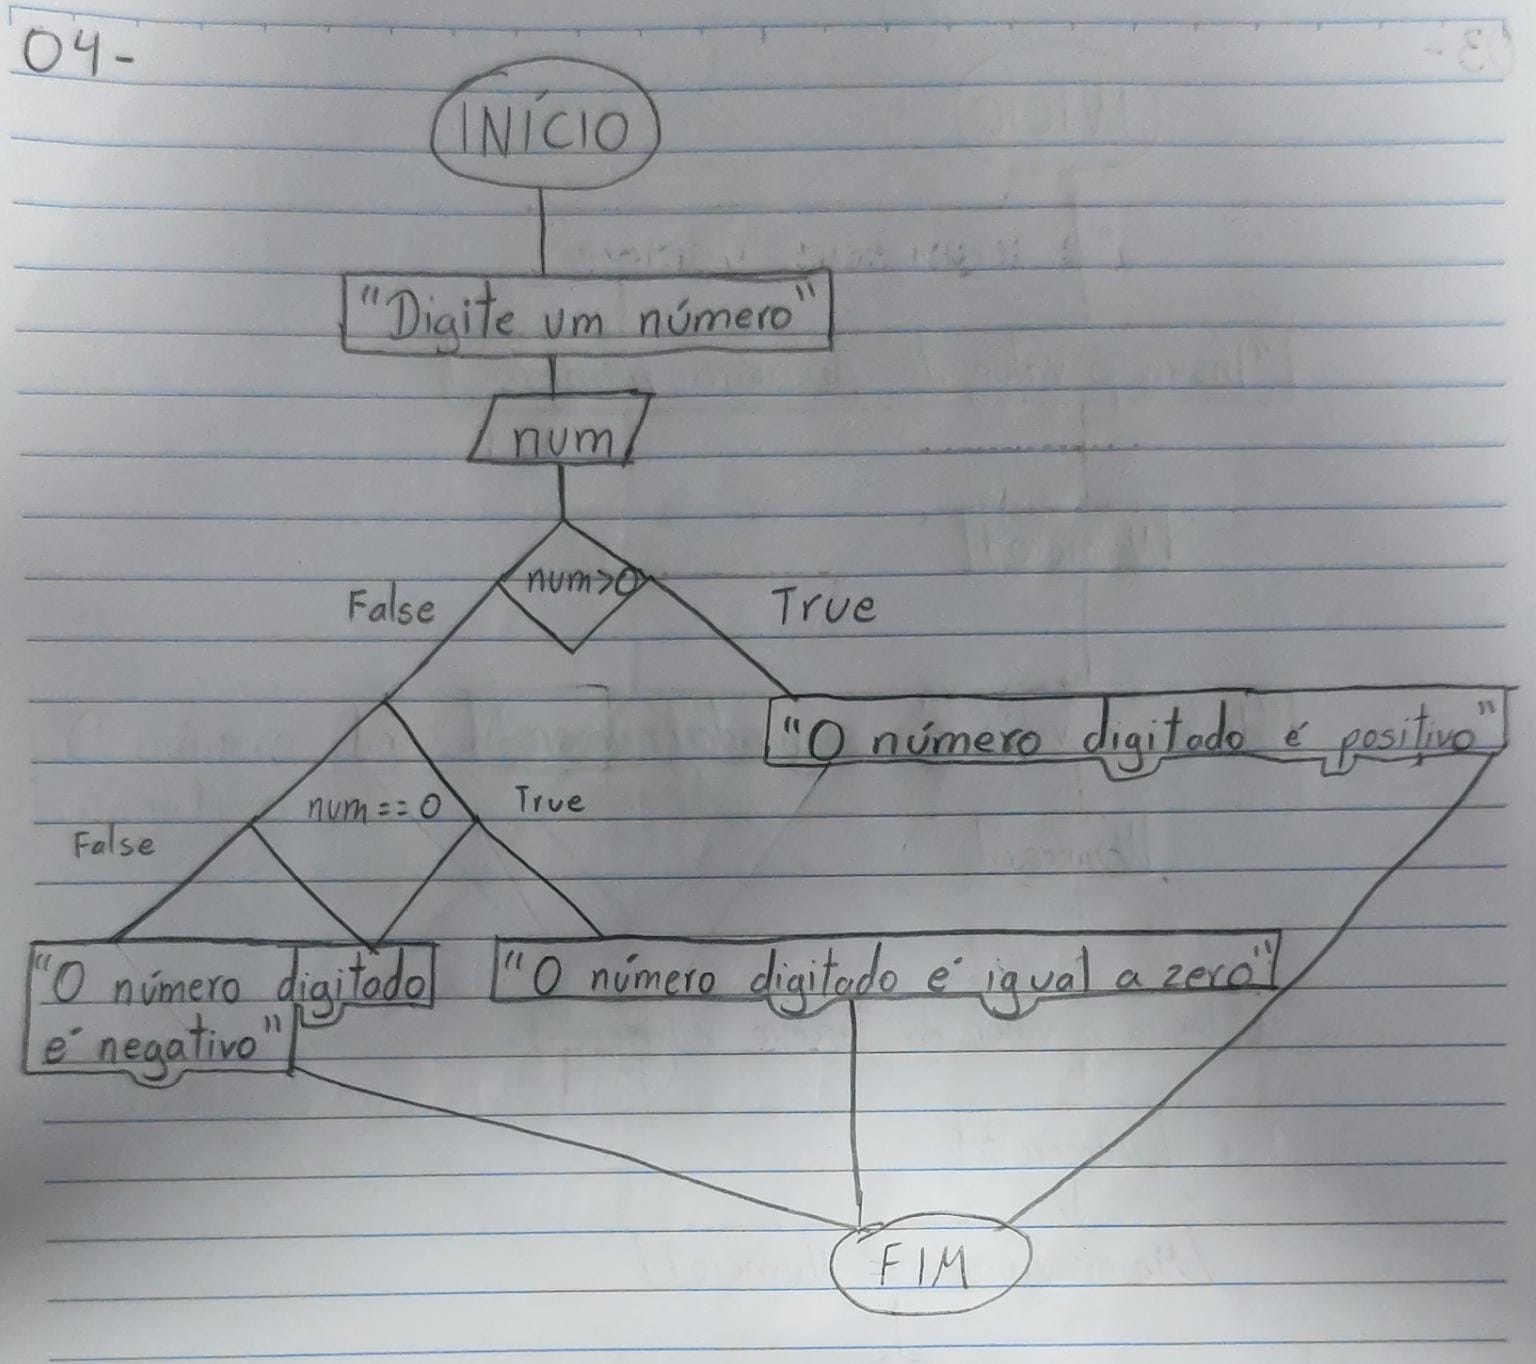 04-
INÍCIO
"Digite um número"
num
num>0
False
True
"O número digitado é positivo"
num == 0
True
False
"O número digitado
é negativo"
"O número digitado é igual a zero"
FIM